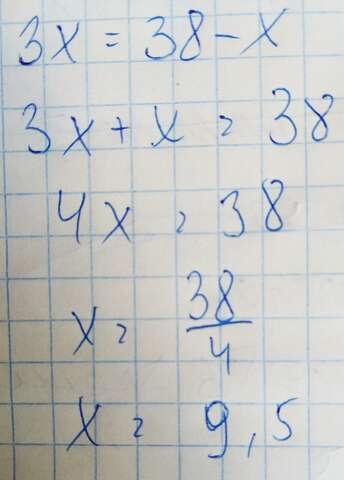 3x = 38 - x
3x + x = 38
4x = 38
x = 38/4
x = 9,5